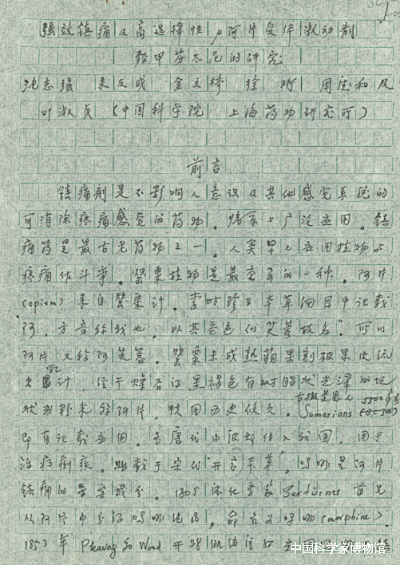 强效镇痛及高选择性μ阿片受体激动剂
羟甲芬太尼的研究
池志强 金文桥 徐珩 周德和及
叶淑贞（中国科学院 上海药物研究所）
前言
镇痛剂是不影响人意识及其他感觉系统的
可消除疼痛感觉的药物，临床上广泛应用。镇
痛药是最古老药物之一。人类早已应用植物与
疼痛作斗争。罂粟植物是最重要的一种。阿片
(opium) 来自罂粟汁，李时珍在本草纲目中记载
阿，方音称我也，以其花色似芙蓉故名"。可以
阿片又称阿芙蓉。罂粟未成熟蒴果割破果皮流
出 汁，干燥后 黑褐色
状 阿片，应用历史悠久。Sumarians
即有记载应用。唐代 传入我国，用于
治病痢疾。载于宋代"开宝本草"。吗啡是阿片
镇痛的重要成分。1805 法化学家 Serturner 首先
从阿片中分得吗啡，命名为吗啡 (morphine)。
1853年 Pravaz & Wood 开始
中国科学家博物馆